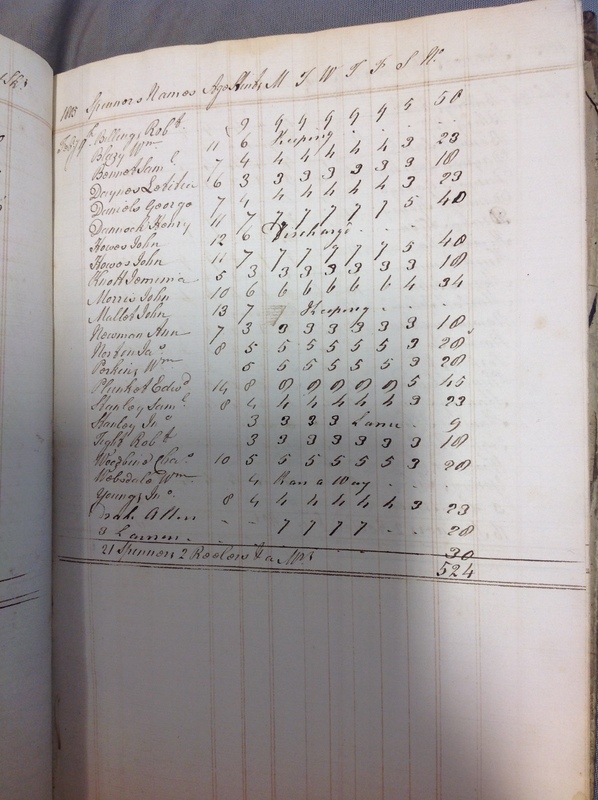 1803 Spinners Names Age Hanks M T W T F S W.
Feby 9th Billings Robt. 9 9 9 9 9 9 5 50
Blazy Wm 11 6 Keeping . . .
Bennet Saml 7 4 4 4 4 4 4 3 23
Daynes Letitia 6 3 3 3 3 3 3 3 18
Daniels George 7 4 4 4 4 4 4 3 23
Dannock Henry 11 7 7 7 7 7 7 5 40
Howes John 12 6 Discharge . . .
Howes John 11 7 7 7 7 7 7 5 40
Knott Jemima 5 3 3 3 3 3 3 3 18
Morris John 10 6 6 6 6 6 6 4 34
Mallet John 13 7 Keeping . . .
Newman Ann 7 3 3 3 3 3 3 3 18
Norton Jas 8 5 5 5 5 5 5 3 28
Perkins Wm 5 5 5 5 5 5 3 28
Plunket Edwd 14 8 8 8 8 8 8 5 45
Stanley Saml 8 4 4 4 4 4 4 3 23
Stanley Jno 3 3 3 3 Lame . 9
Tight Robt 3 3 3 3 3 3 3 18
Woodbine Chas 10 5 5 5 5 5 5 3 28
Websdale Wm 4 Ran a Way . . .
Young Jno 8 4 4 4 4 4 4 3 23
Allen - - 7 7 7 7 . . 28
3 . . . 30
21 Spinners 2 Reelers & a 524